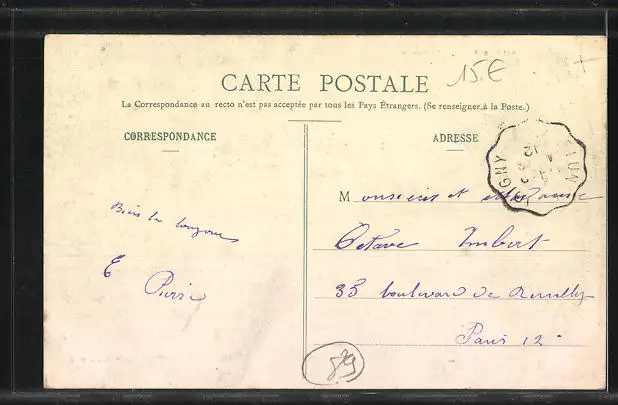 CARTE POSTALE
15€
La Correspondance au recto n'est pas acceptée par tous les Pays Étrangers. (Se renseigner à la Poste.)
CORRESPONDANCE
ADRESSE
Monsieur et Madame
Octave Imbert
35 boulevard de Reuilly
Paris 12
E
89